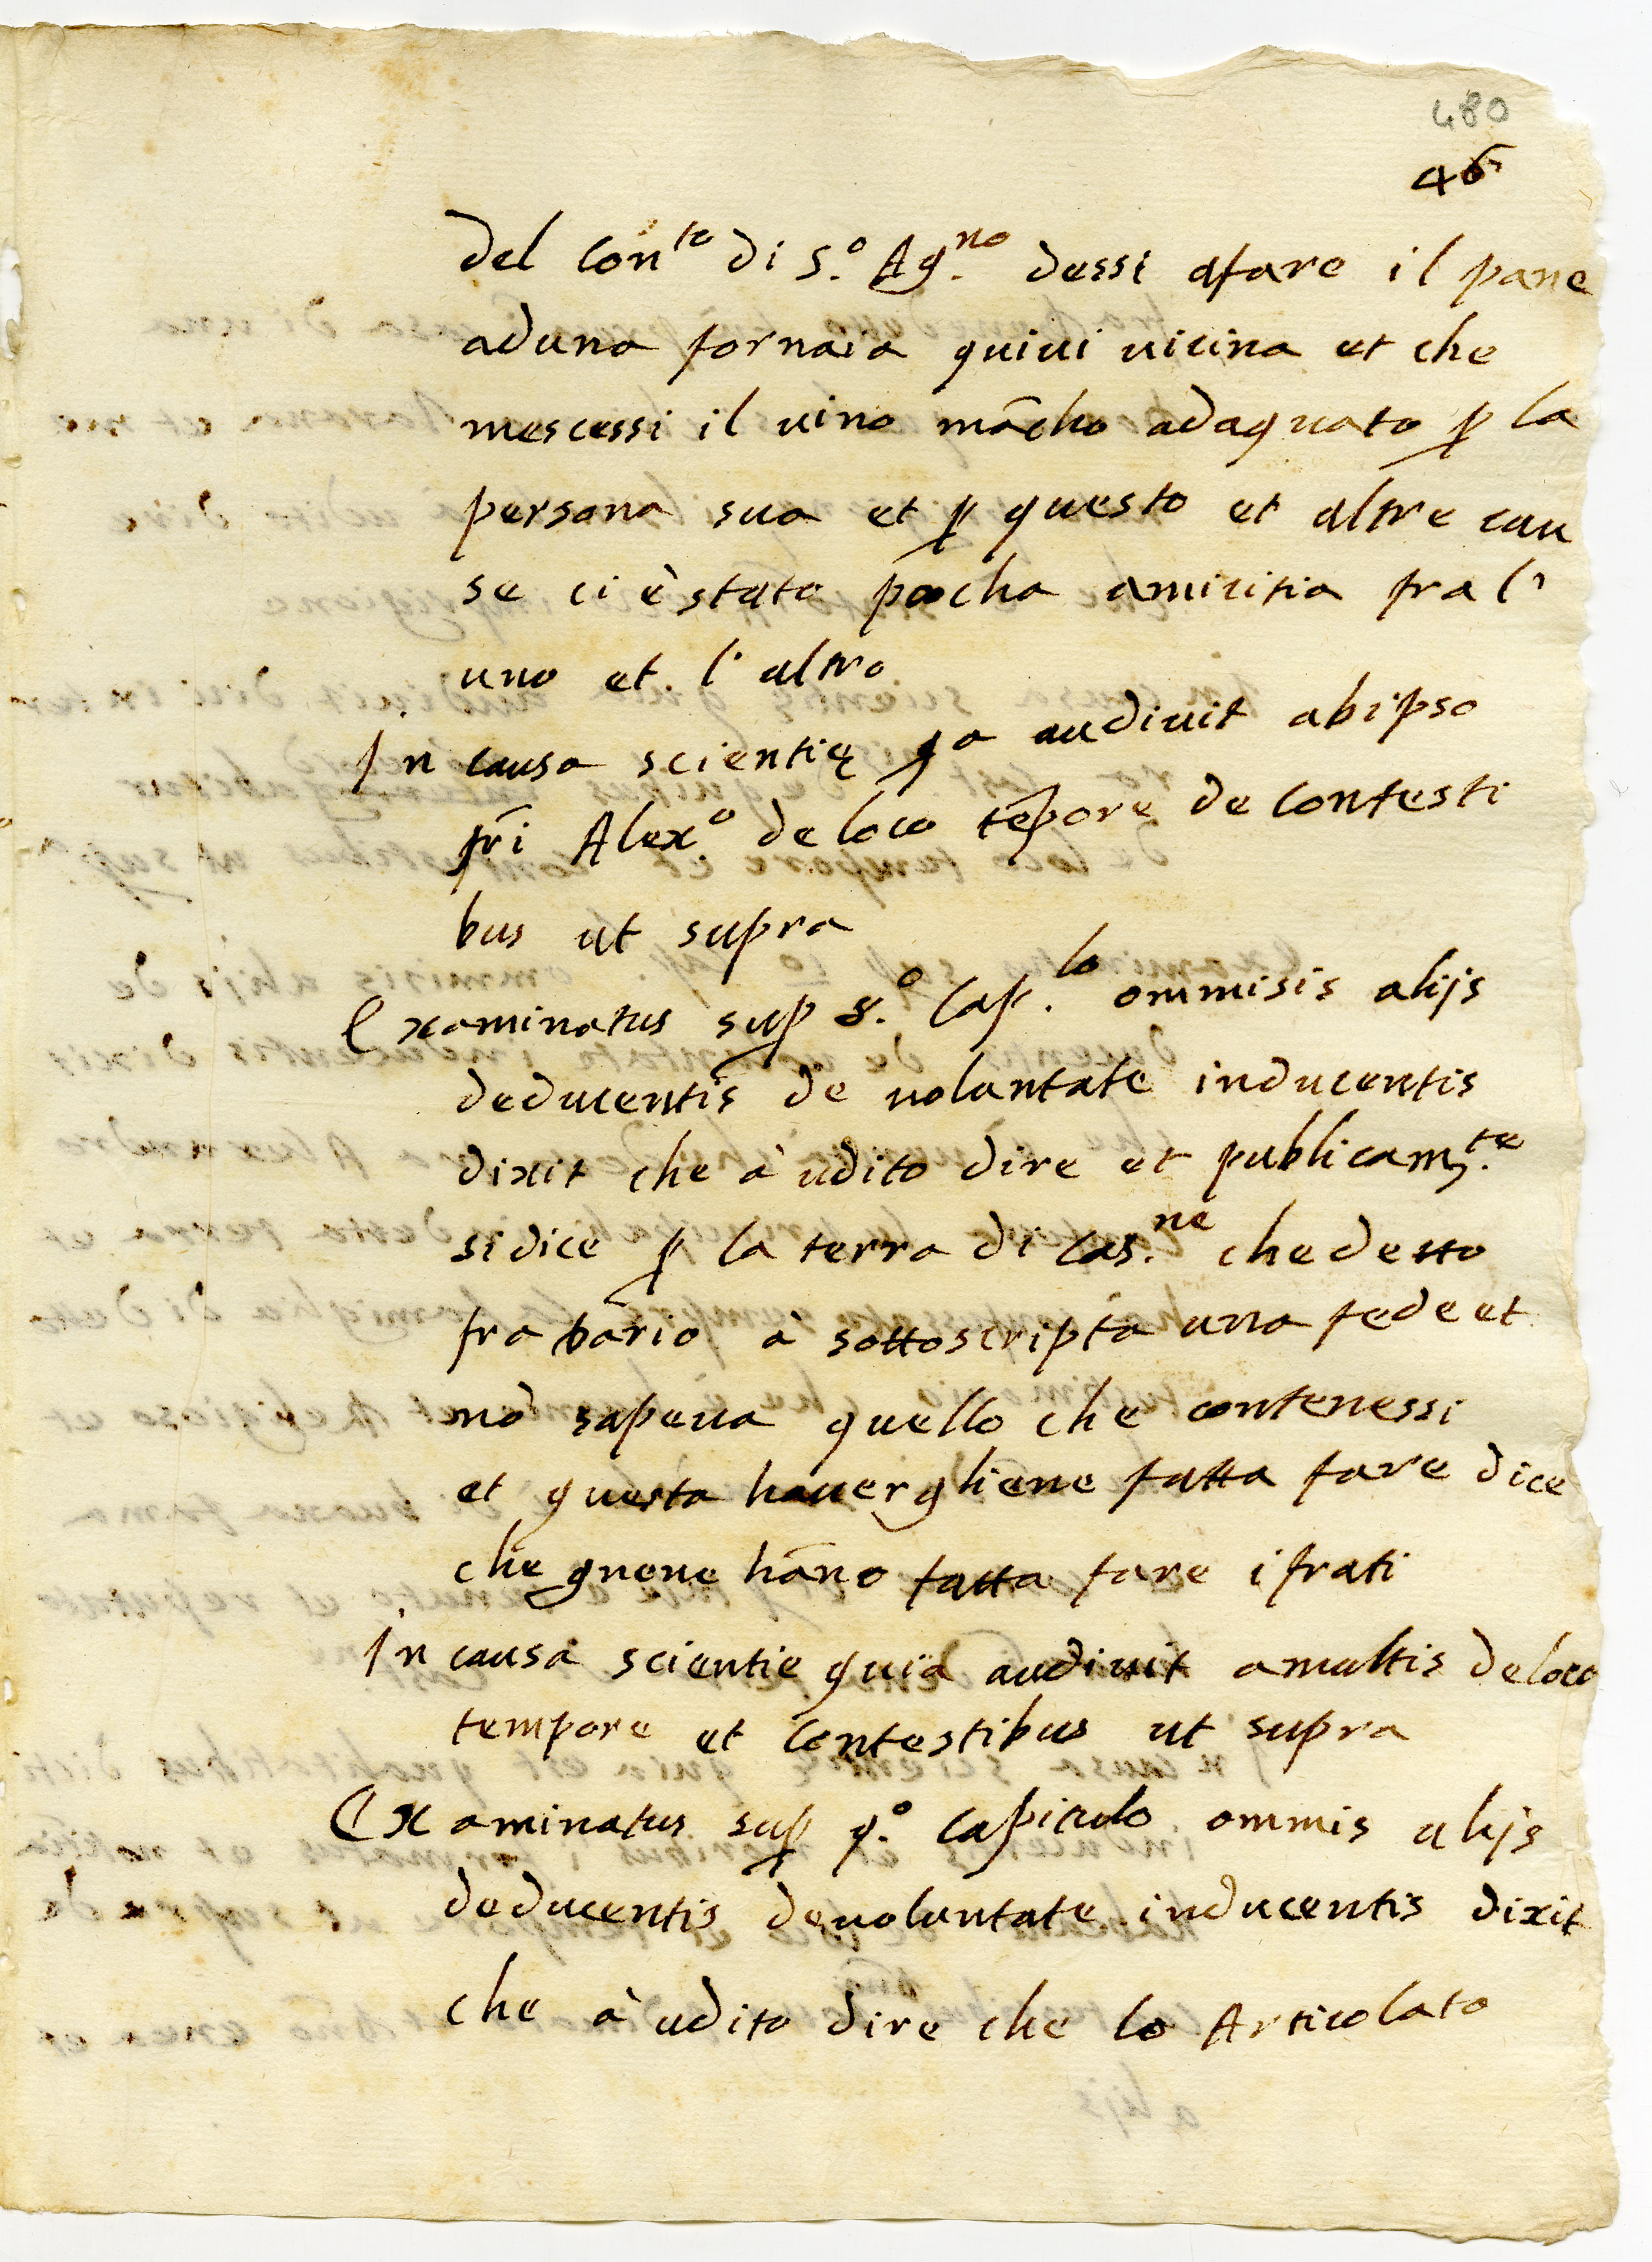 480
46
del Con.to di S.o Ag.no dessi afare il pane
aduna fornaia quiui uicina et che
mescessi il uino mācho adaquato ꝑ la
persona sua et ꝑ questo et altre cau
se ci è stata pocha amicitia fra l'
uno et l'altro
In causa scientię qa audiuit abipso
fr̄i Alex.o de loco tēpore de Contesti
bus ut supra
Examinatus sup 8.o Cap.lo ommisis alijs
deducentis de uoluntate inducentis
dixit che à udito dire et publicam.te
si dice ꝑ la terra di Cas.ne che detto
fra bario à sottoscripta una fede et
nō sapeua quello che contenessi
et questa hauergliene fatta fare dice
che gnene hāno fatta fare i frati
In causa scientie quia audiuit amultis deloco
tempore et Contestibus ut supra
Examinatus sup 9.o Capitulo ommis alijs
deducentis deuoluntate inducentis dixit
che à udito dire che lo Articolato